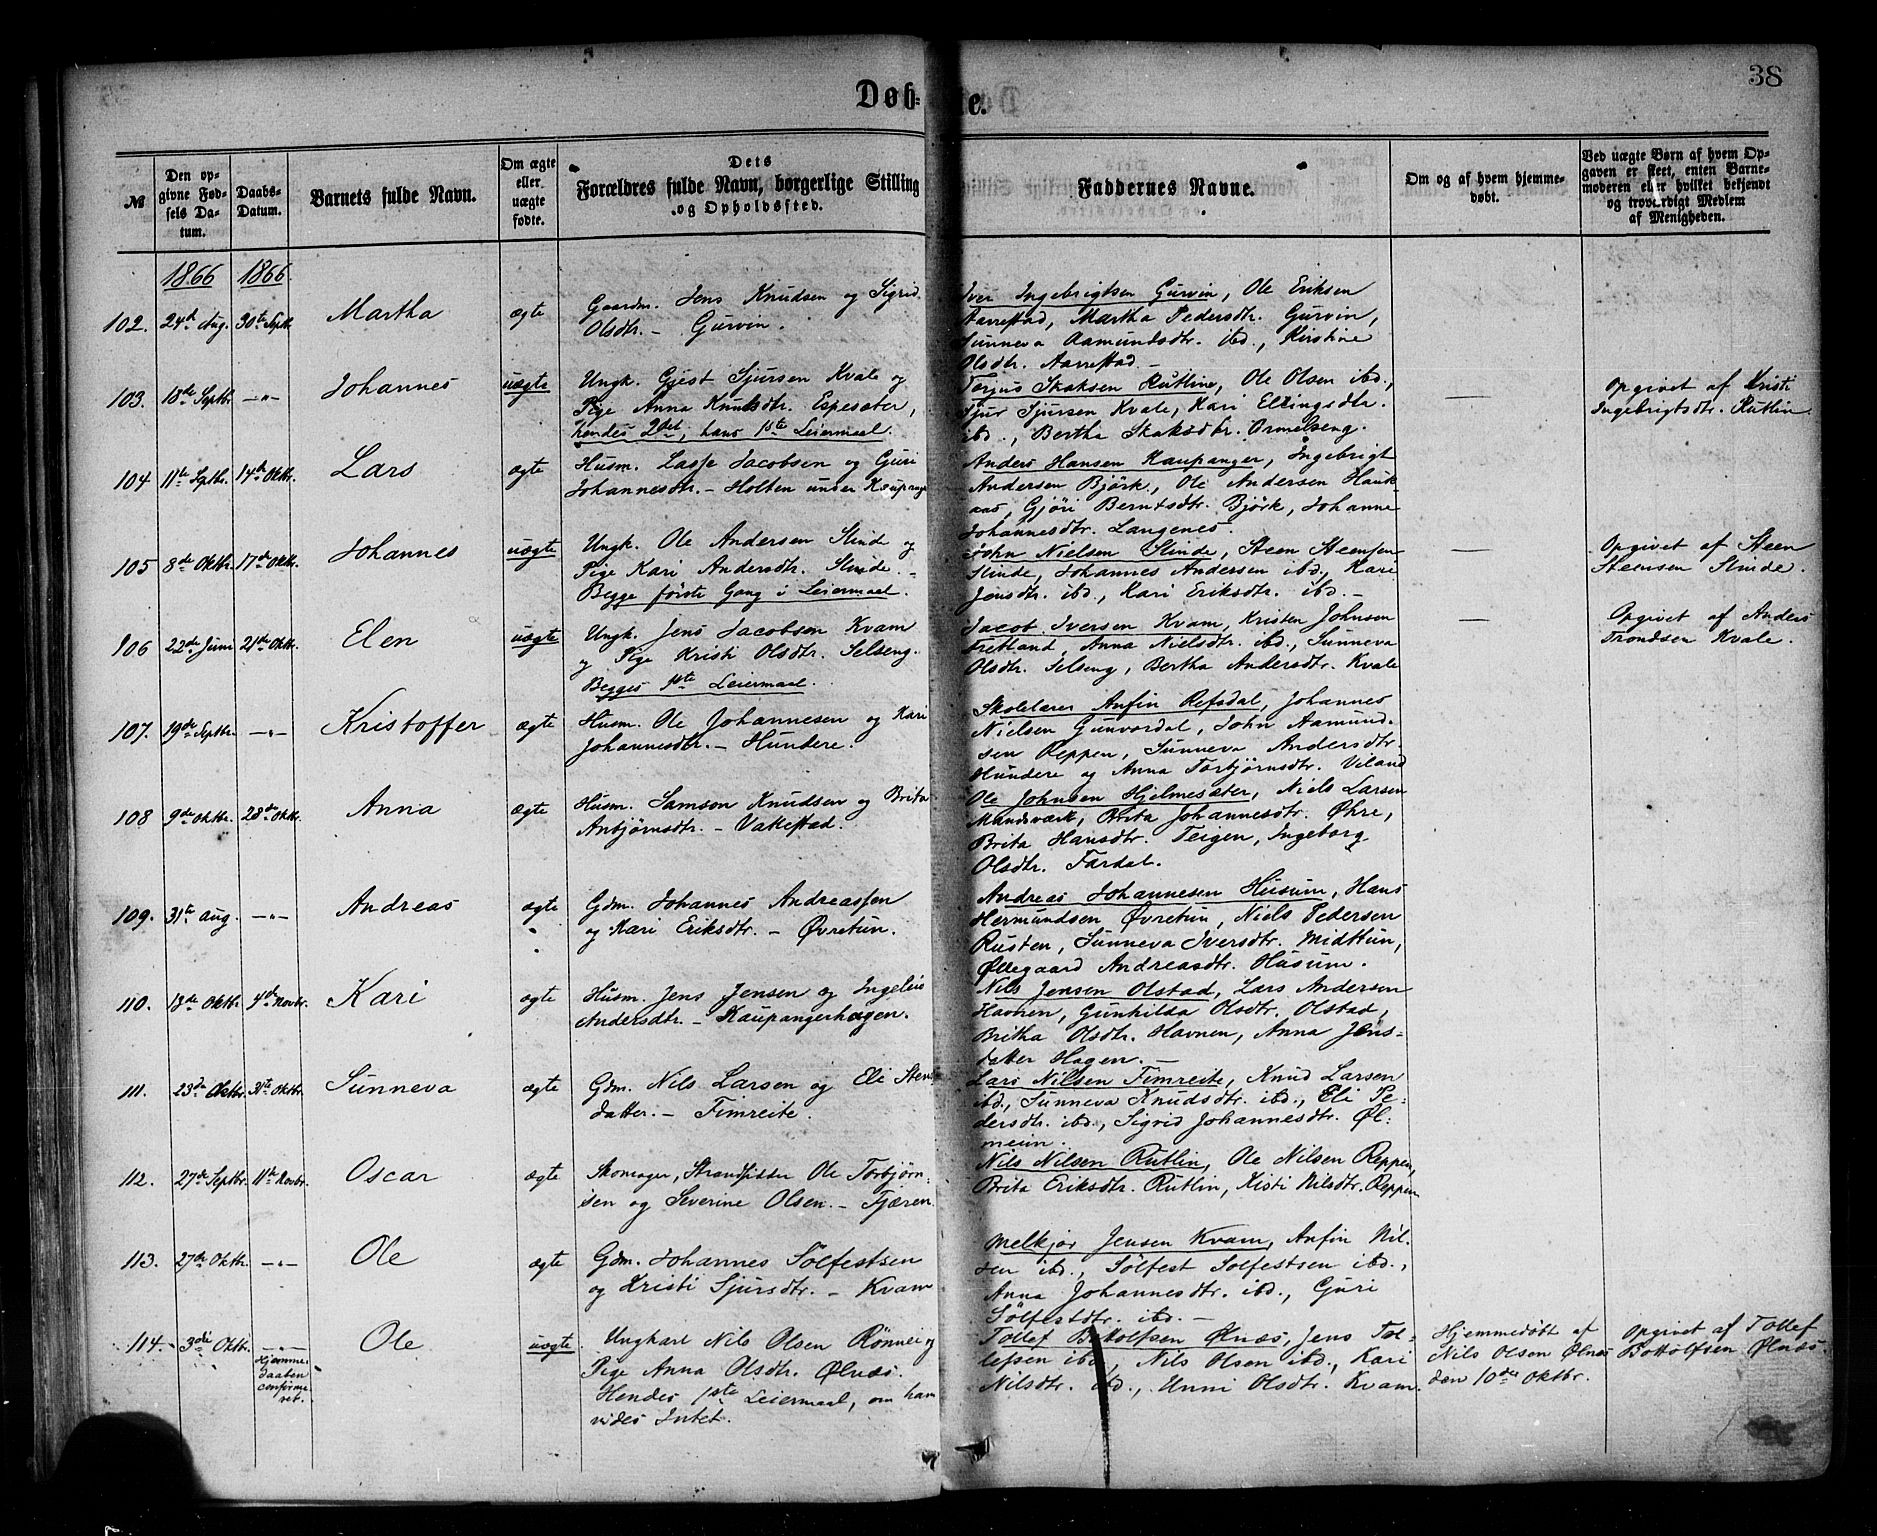 38
Døb-te.
№
Den op-
givne Fød-
sels Da-
tum.
Daabs-
Datum.
Barnets fulde Navn.
Om ægte
eller
uægte
fødte.
Dets
Forældres fulde Navn, borgerlige Stilling
og Opholdssted.
Faddernes Navne.
Om og af hvem hjemme-
døbt.
Ved uægte Børn af hvem Op-
gaven er skeet, enten Barne-
moderen eller hvilket bekjendt
og troværdigt Medlem
af Menigheden.
1866 1866.
102. 24de Aug. 30te Septb. Martha ægte
Gaardm. Jens Knudsen og Sigrid
Olsdtr. – Gurvin.
Iver Ingebrigtsen Gurvin, Ole Eriksen
Aarestad, Martha Pedersdtr. Gurvin,
Sunneva Aamundsdtr. ibd., Kirstine
Olsdtr. Aarestad. –
103. 18de Septbr. –„– Johannes uægte
Ungk. Gjest Sjursen Kvale og
Pige Anna Knudsdtr. Espesæter,
hendes 2det, hans 1ste Leiermaal.
Torjus Skaksen Rutlin, Ole Olsen ibd.,
Sjur Sjursen Kvale, Kari Ellingsdtr.
ibd., Bertha Skaksdtr. Ormelseng.
—
Opgivet af Kristi
Ingebrigtsdtr. Rutlin
104 11te Septbr. 14de Oktbr. Lars ægte
Husm. Lasse Jacobsen og Guri
Johannesdtr. – Holten under Kaupange
Anders Hansen Kaupanger, Ingebrigt
Andersen Björk, Ole Andersen Hauk-
aas, Gjöri Berntsdtr. Björk, Johanne
Johannesdtr. Langenes.
105 8de Oktbr. 17de Oktbr. Johannes uægte
Ungk. Ole Andersen Slinde og
Pige Kari Andersdtr. Slinde. –
Begge förste Gang i Leiermaal.
John Nielsen Slinde, Steen Steensen
Slinde, Johannes Andersen ibd., Kari
Jensdtr. ibd., Kari Eriksdtr. ibd. –
—
Opgivet af Steen
Steensen Slinde.
106 22de Juni 21de Oktbr. Elen uægte
Ungk. Jens Jacobsen Kvam
og Pige Kristi Olsdtr. Selseng.
Begges 1ste Leiermaal.
Jacob Iversen Kvam, Kristen Johnsen
Fretland, Anna Nielsdtr. ibd., Sunneva
Olsdtr. Selseng, Bertha Andersdtr. Kvale
—
Opgivet af Anders
Trondsen Kvale.
107. 19de Septbr. –„– Kristoffer ægte
Husm. Ole Johannesen og Kari
Johannesdtr. – Hundere.
Skolelærer Anfin Refsdal, Johannes
Nielsen Gunvordal, John Aamund-
sen Reppen, Sunneva Andersdtr.
Hundere og Anna Torbjørnsdtr. Veland
108 9de Oktbr. 28de Oktbr. Anna ægte
Husm. Samson Knudsen og Brita
Anbjörnsdtr. – Vakestad.
Ole Johnsen Hjelmesæter, Niels Larsen
Mundsværk, Brita Johannesdtr. Øhre,
Brita Hansdtr. Teigen, Ingeborg
Olsdtr. Fardal.
109. 31te Aug. –„– Andreas ægte
Gdm. Johannes Andreassen
og Kari Eriksdtr. – Øvretun.
Andreas Johannesen Husum, Hans
Hermundsen Øvretun, Niels Pedersen
Rusten, Sunneva Iversdtr. Midttun,
Øllegaard Andreasdtr. Husum.
110. 13de Oktbr. 4de Novbr. Kari ægte
Husm. Jens Jensen og Ingeleis
Andersdtr. – Kaupangerhagen.
Nils Jensen Olstad, Lars Andersen
Havnen, Gunhilda Olsdtr. Olstad,
Britha Olsdtr. Havnen, Anna Jens-
datter Hagen. –
111. 23de Oktbr. 31te Oktbr. Sunneva ægte
Gdm. Nils Larsen og Eli Stens
datter. – Fimreite.
Lars Nilsen Fimreite, Knud Larsen
ibd., Sunneva Knudsdtr. ibd., Eli Pe-
dersdtr. ibd., Sigrid Johannesdtr. Øl-
meim.
112. 27de Septbr. 11te Novbr. Oscar ægte
Skomager, Strandsidder Ole Torbjörn-
sen og Severine Olsen. – Fjæren
Nils Nilsen Rutlin, Ole Nilsen Reppen,
Brita Eriksdtr. Rutlin, Kristi Nilsdtr. Reppen
113. 27de Oktbr. –„– Ole ægte
Gdm. Johannes Sölfestsen
og Kristi Sjursdtr. – Kvam
Melkjor Jensen Kvam, Anfin Nil-
sen ibd., Sölfest Sölfestsen ibd.,
Anna Johannesdtr. ibd., Guri
Sölfestdtr. ibd. –
114. 3die Oktbr. –„– Ole uægte
Hjemme-
daaben
confirme-
ret.
Ungkarl Nils Olsen Rönnei og
Pige Anna Olsdtr. Ølnæs.
Hendes 1ste Leiermaal, om ham
vides Intet.
Tollef Botolfsen Ølnæs, Jens Tol-
lefsen ibd., Nils Olsen ibd., Kari
Nilsdtr. ibd., Unni Olsdtr. Kvam.
Hjemmedöbt af
Nils Olsen Ølnæs
den 10de Oktbr.
Opgivet af Tollef
Bottolfsen Ølnæs.